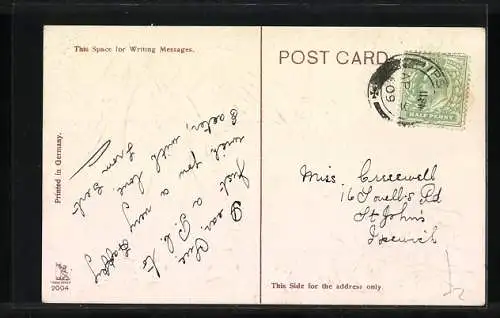 This Space for Writing Messages.
POST CARD
HALF PENNY
Printed in Germany.
Dear
Just a P.C. to
wish you a very Happy
Easter, with love
from Gert
Miss. Creswell
16 Lovell's Rd
St John's
Ipswich
This Side for the address only.
2004